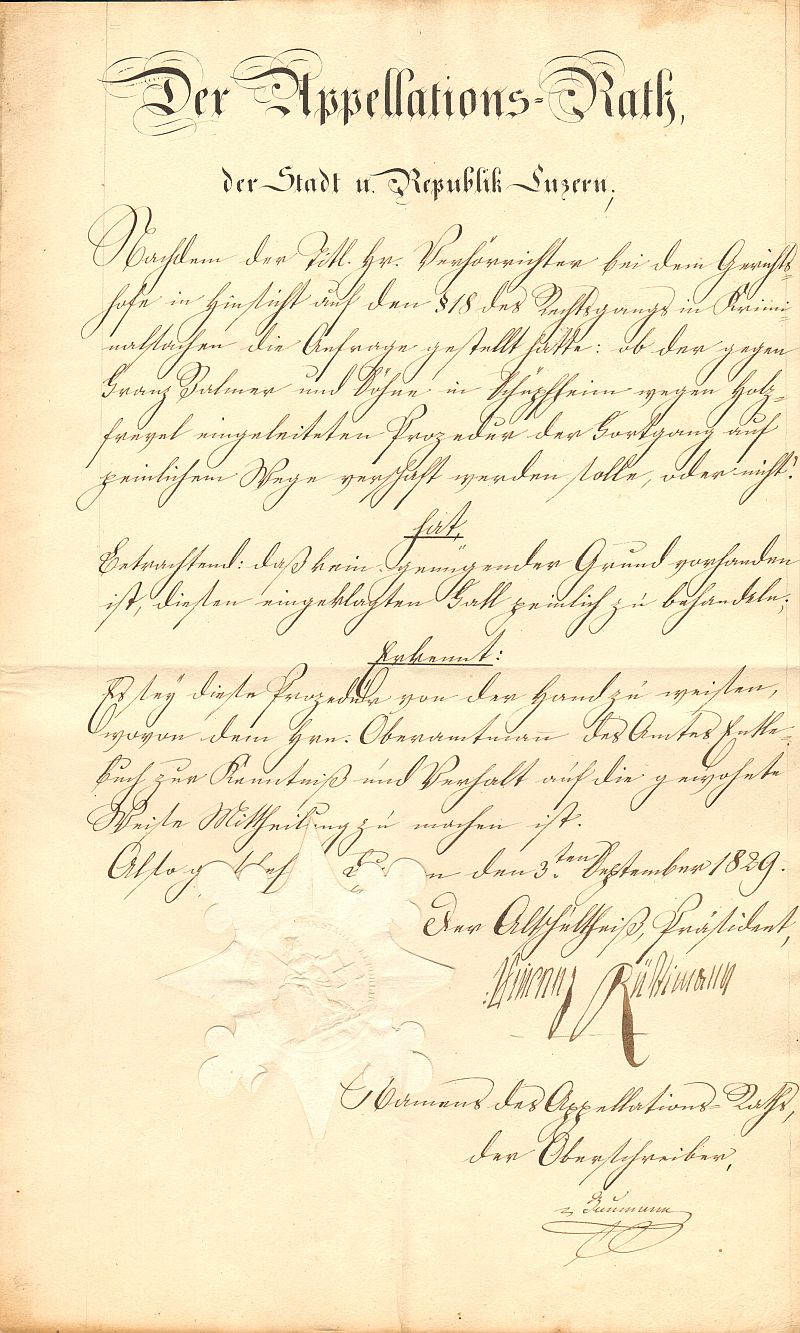 Der Appellations-Rath,
der Stadt u. Republik Luzern;
Nachdem der Titl. Hr. Verhörrichter bei dem Gerichts-
hofe in Hinsicht auf den §18 des Rechtsgangs in Krimi-
nalsachen die Anfrage gestellt hatte: ob der gegen
Franz Salmer und Söhne in Schüpfheim wegen Holz-
frevel eingeleiteten Prozedur der Fortgang auf
peinlichem Wege verschaft werden solle, oder nicht?
hat,
Betrachtend: daß kein genügender Grund vorhanden
ist, diesen eingeklagten Fall peinlich zu behandeln;
Erkennt:
Es sey diese Prozedur von der Hand zu weisen,
wovon dem Hrn. Oberamtmann des Amtes Entle-
buch zur Kenntniß und Verhalt auf die gewohnte
Weise Mittheilung zu machen ist.
Also den 3.ten September 1829.
Der Altschultheiß, Präsident,
Vincenz Rüttimann
Namens des Appellations-Raths,
der Oberschreiber,